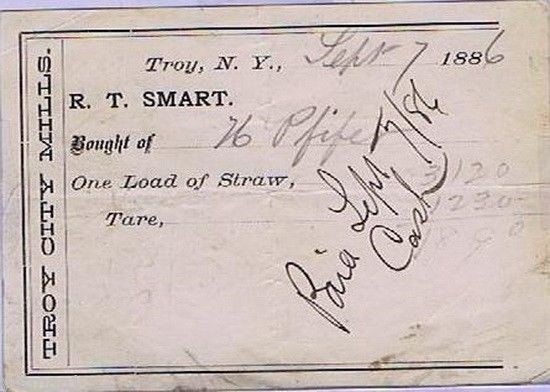 TROY CITY MILLS.
Troy, N. Y., Sept 7 1886
R. T. SMART.
Bought of H Pfifer
One Load of Straw, 3120
Tare, 1230
Paid Sept 7/86
Cash